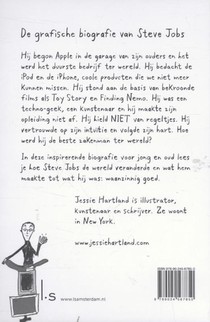 De grafische biografie van Steve Jobs
Hij begon Apple in de garage van zijn ouders en het
werd het duurste bedrijf ter wereld. Hij bedacht de
iPod en de iPhone, coole producten die we niet meer
kunnen missen. Hij stond aan de basis van bekroonde
films als Toy Story en Finding Nemo. Hij was een
techno-geek, een kunstenaar en hij maakte zijn
opleiding niet af. Hij hield NIET van regeltjes. Hij
vertrouwde op zijn intuïtie en volgde zijn hart. Hoe
werd hij de beste zakenman ter wereld?
In deze inspirerende biografie voor jong en oud lees
je hoe Steve Jobs de wereld veranderde en wat hem
maakte tot wat hij was: waanzinnig goed.
Jessie Hartland is illustrator,
kunstenaar en schrijver. Ze woont
in New York.
www.jessiehartland.com
l.s
www.lsamsterdam.nl